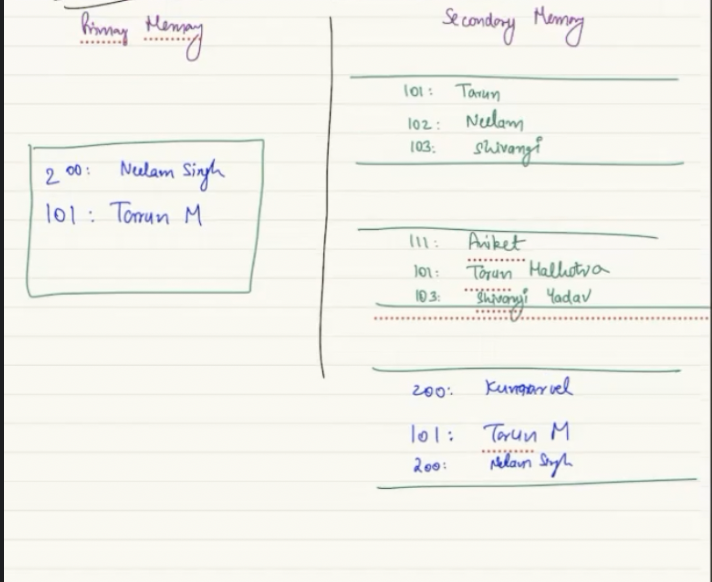 Primary Memory
200: Neelam Singh
101: Tarun M
Secondary Memory
101: Tarun
102: Neelam
103: Shivangi
111: Aniket
101: Tarun Malhotra
103: Shivangi Yadav
200: Kumaravel
101: Tarun M
200: Nelam Singh